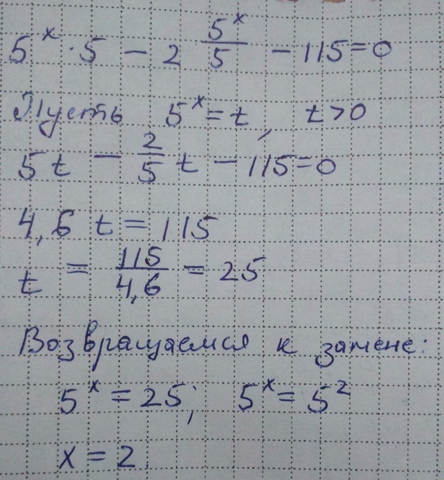 5^x · 5 − 2 5^x/5 − 115 = 0
Пусть 5^x = t, t > 0
5t − 2/5 t − 115 = 0
4,6 t = 115
t = 115/4,6 = 25
Возвращаемся к замене:
5^x = 25; 5^x = 5^2
x = 2